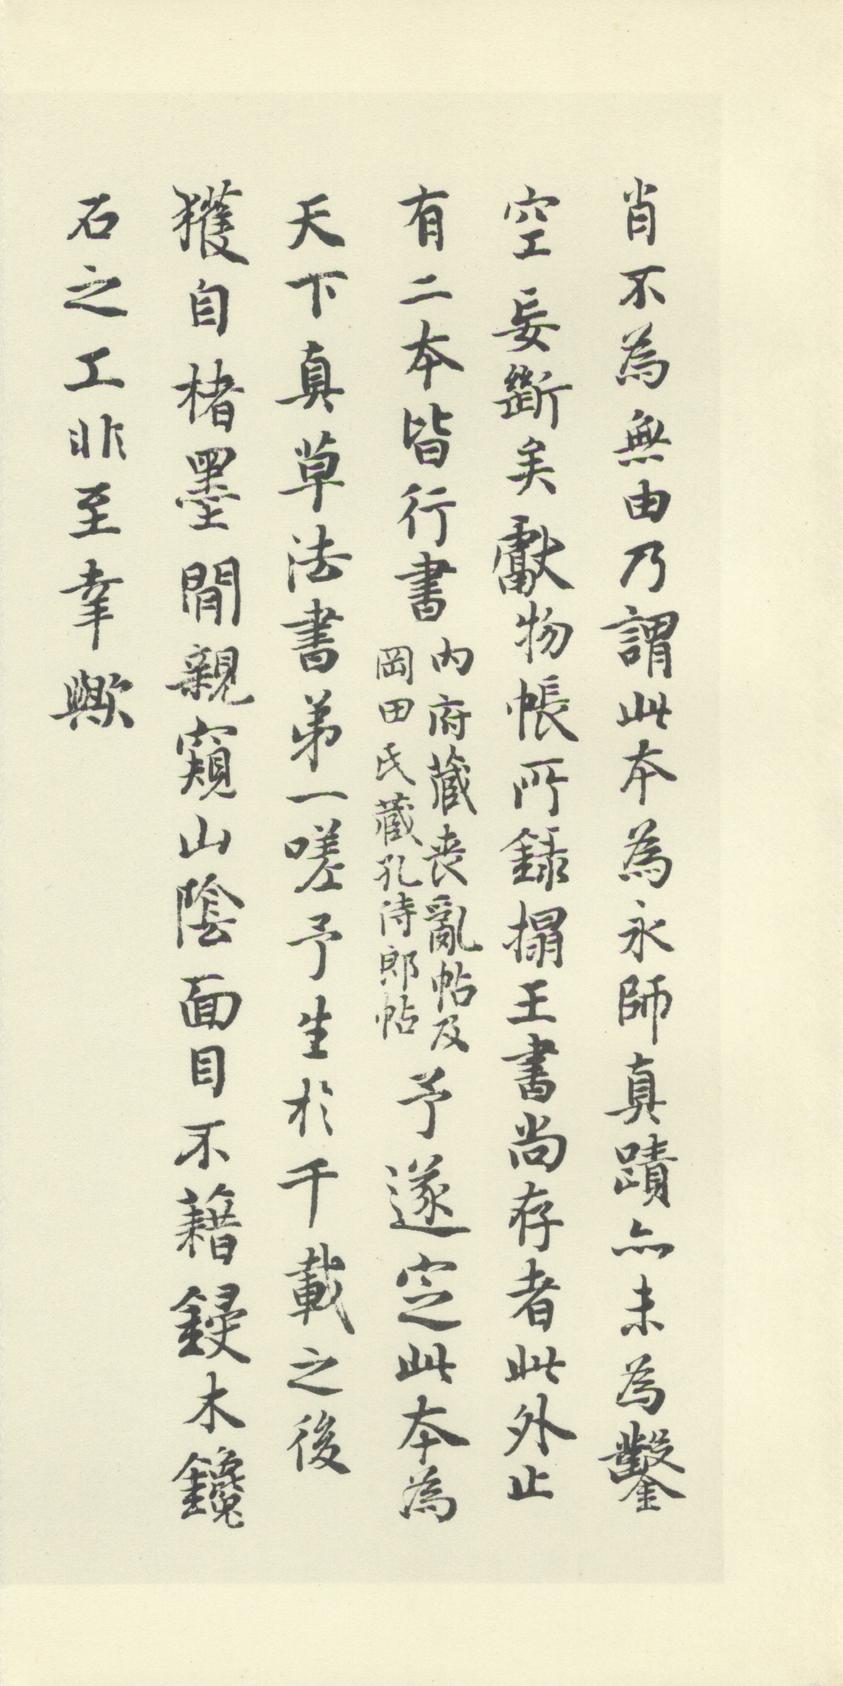 肖不為無由乃謂此本為永師真蹟亦未為鑿
空妄斷矣獻物帳所錄搨王書尚存者此外止
有二本皆行書
內府藏喪亂帖及
岡田氏藏孔侍郎帖
予遂定此本為
天下真草法書第一嗟予生於千載之後
獲自楮墨間親窺山陰面目不藉鋟木鑱
石之工非至幸歟